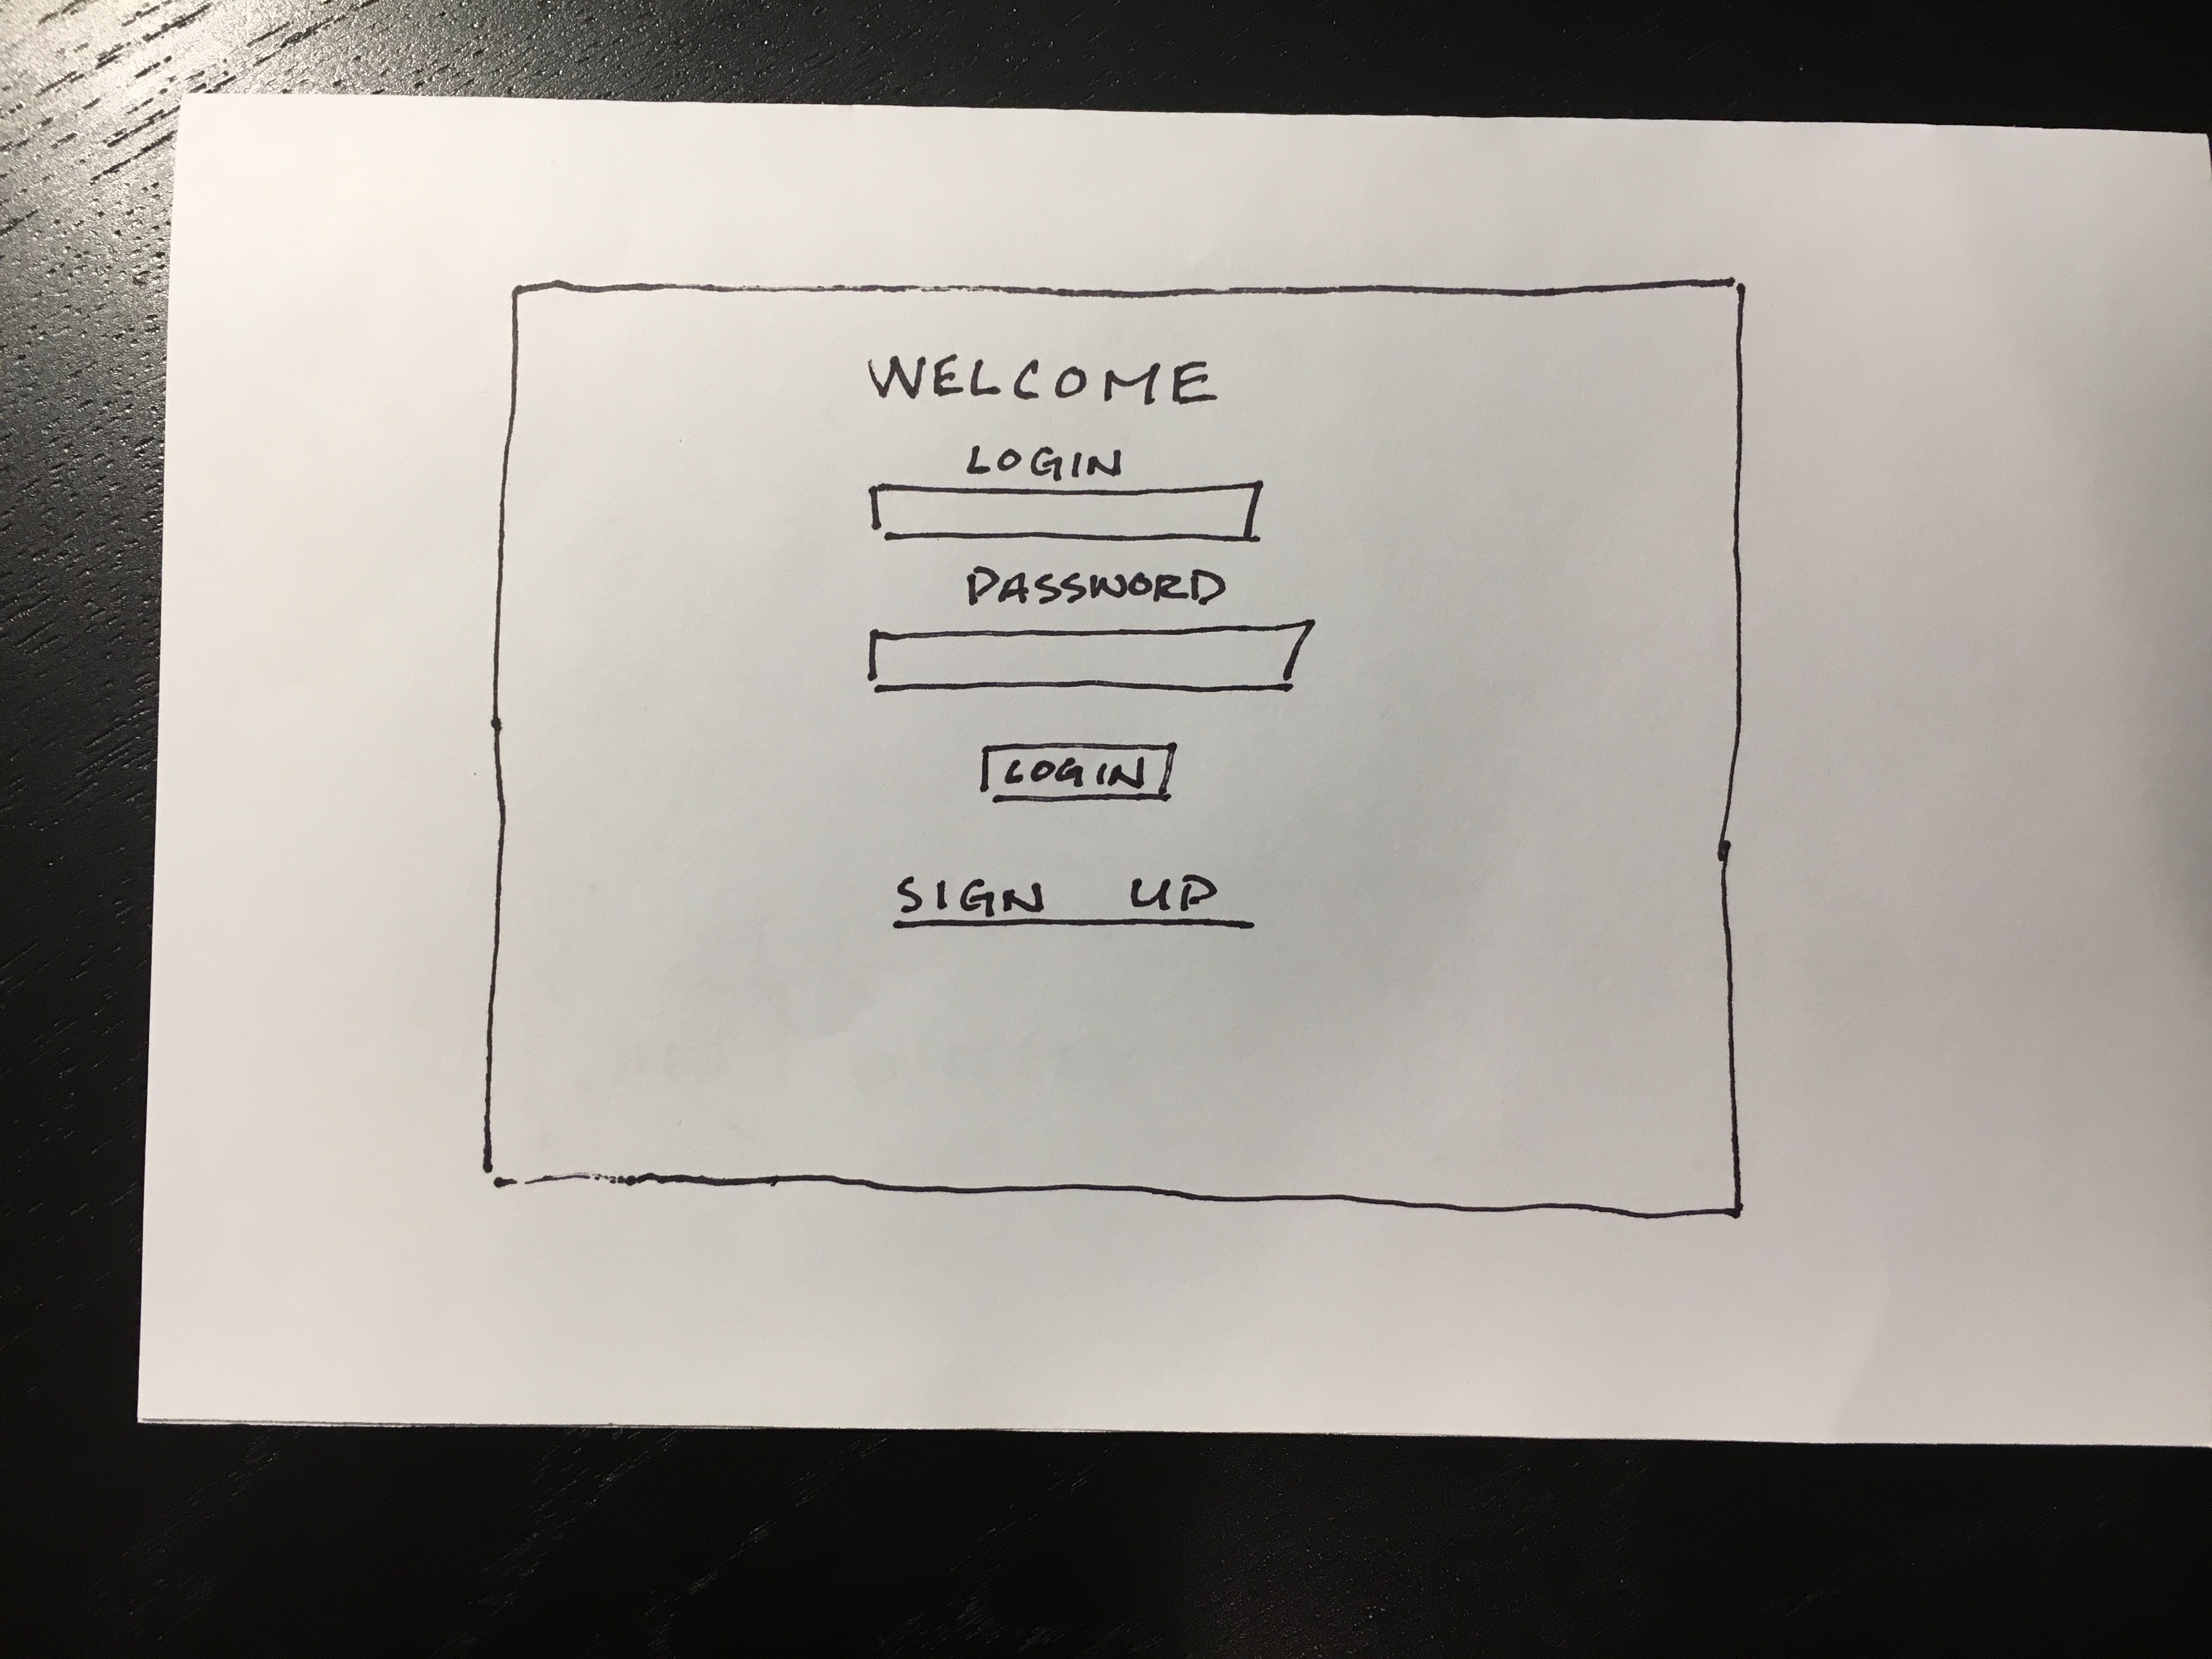 WELCOME
LOGIN
PASSWORD
LOGIN
SIGN UP